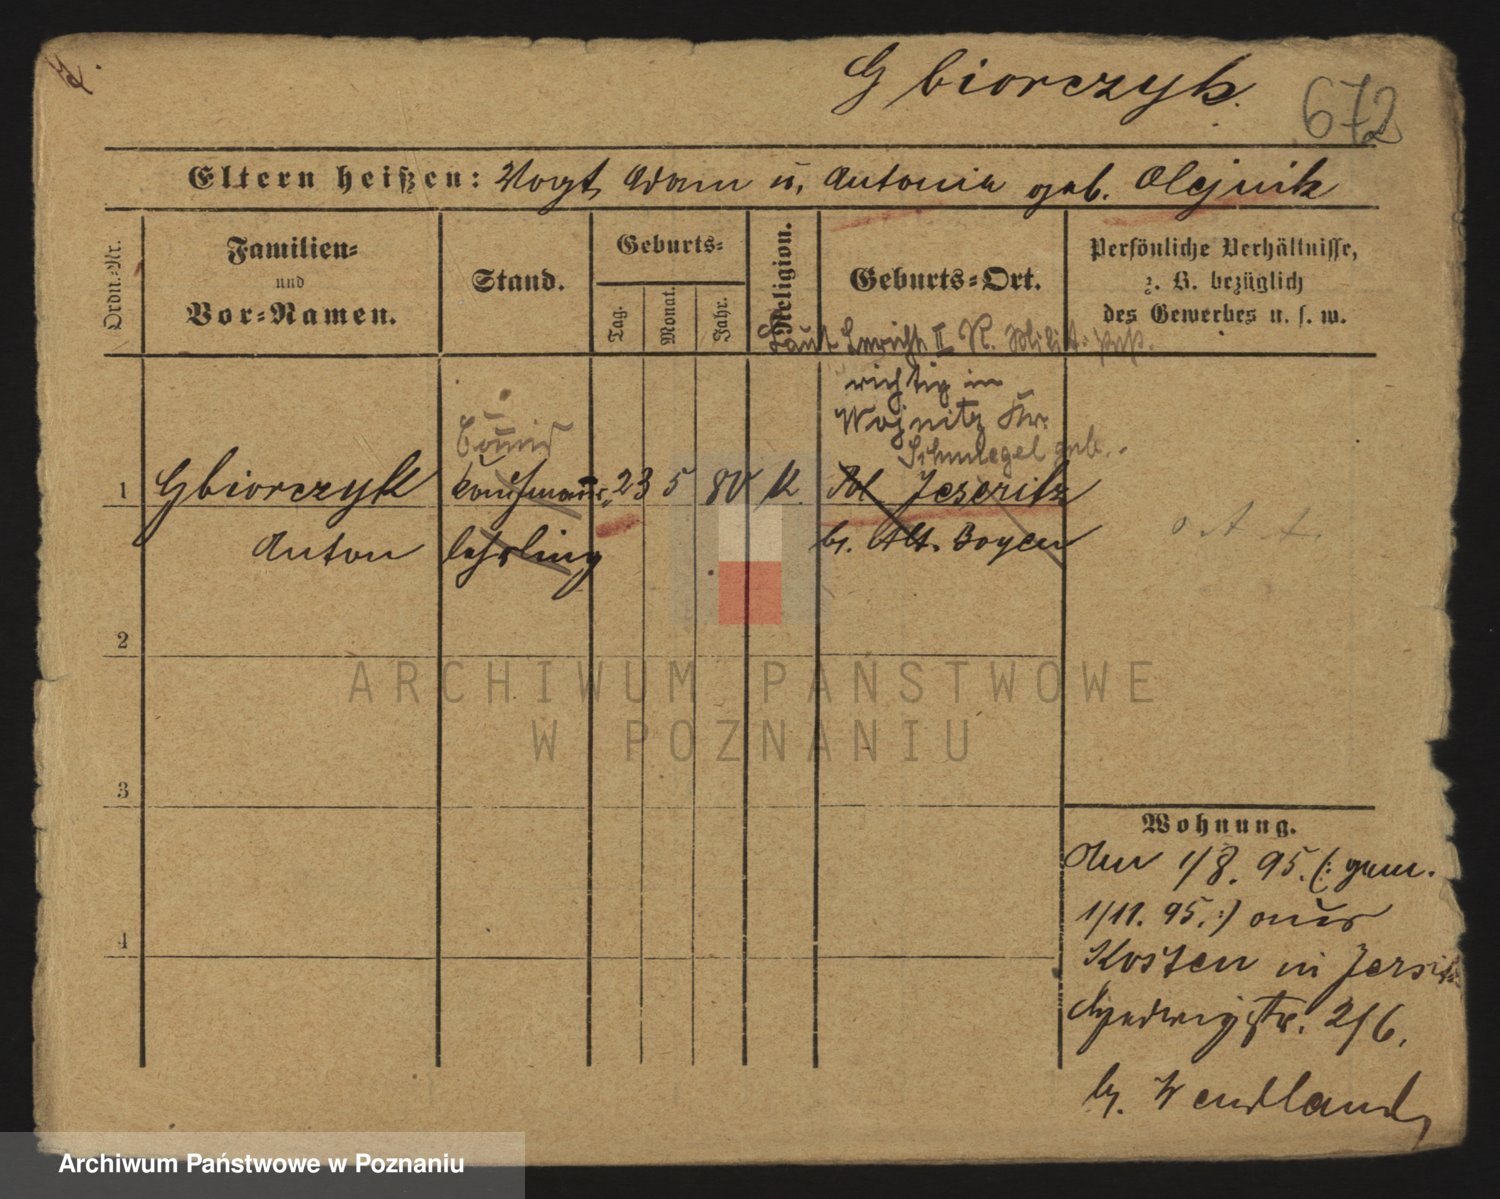 Gbiorczyk.
672
Eltern heißen: Vogt Adam u. Antonia geb. Olejnik
Ordn.-Nr.
Familien-
und
Vor-Namen.
Stand.
Geburts-
Tag.
Monat.
Jahr.
Religion.
Geburts-Ort.
Persönliche Verhältnisse,
z. B. bezüglich
des Gewerbes u. s. w.
Laut Bericht II R. Milit. paß.
richtig in
Wojnitz Kr.
Schmiegel geb.
1 Gbiorczyk Kaufmanns 23 5 80 K. Jeseritz
Anton lehrling b. Alt. Boyen
2
3
4
ARCHIWUM PAŃSTWOWE
W POZNANIU
Wohnung.
Am 1/8. 95. (: gem.
1/11. 95. :) aus
Kosten in Jersitz
Hedwigstr. 2/6.
b. Wendland
Archiwum Państwowe w Poznaniu